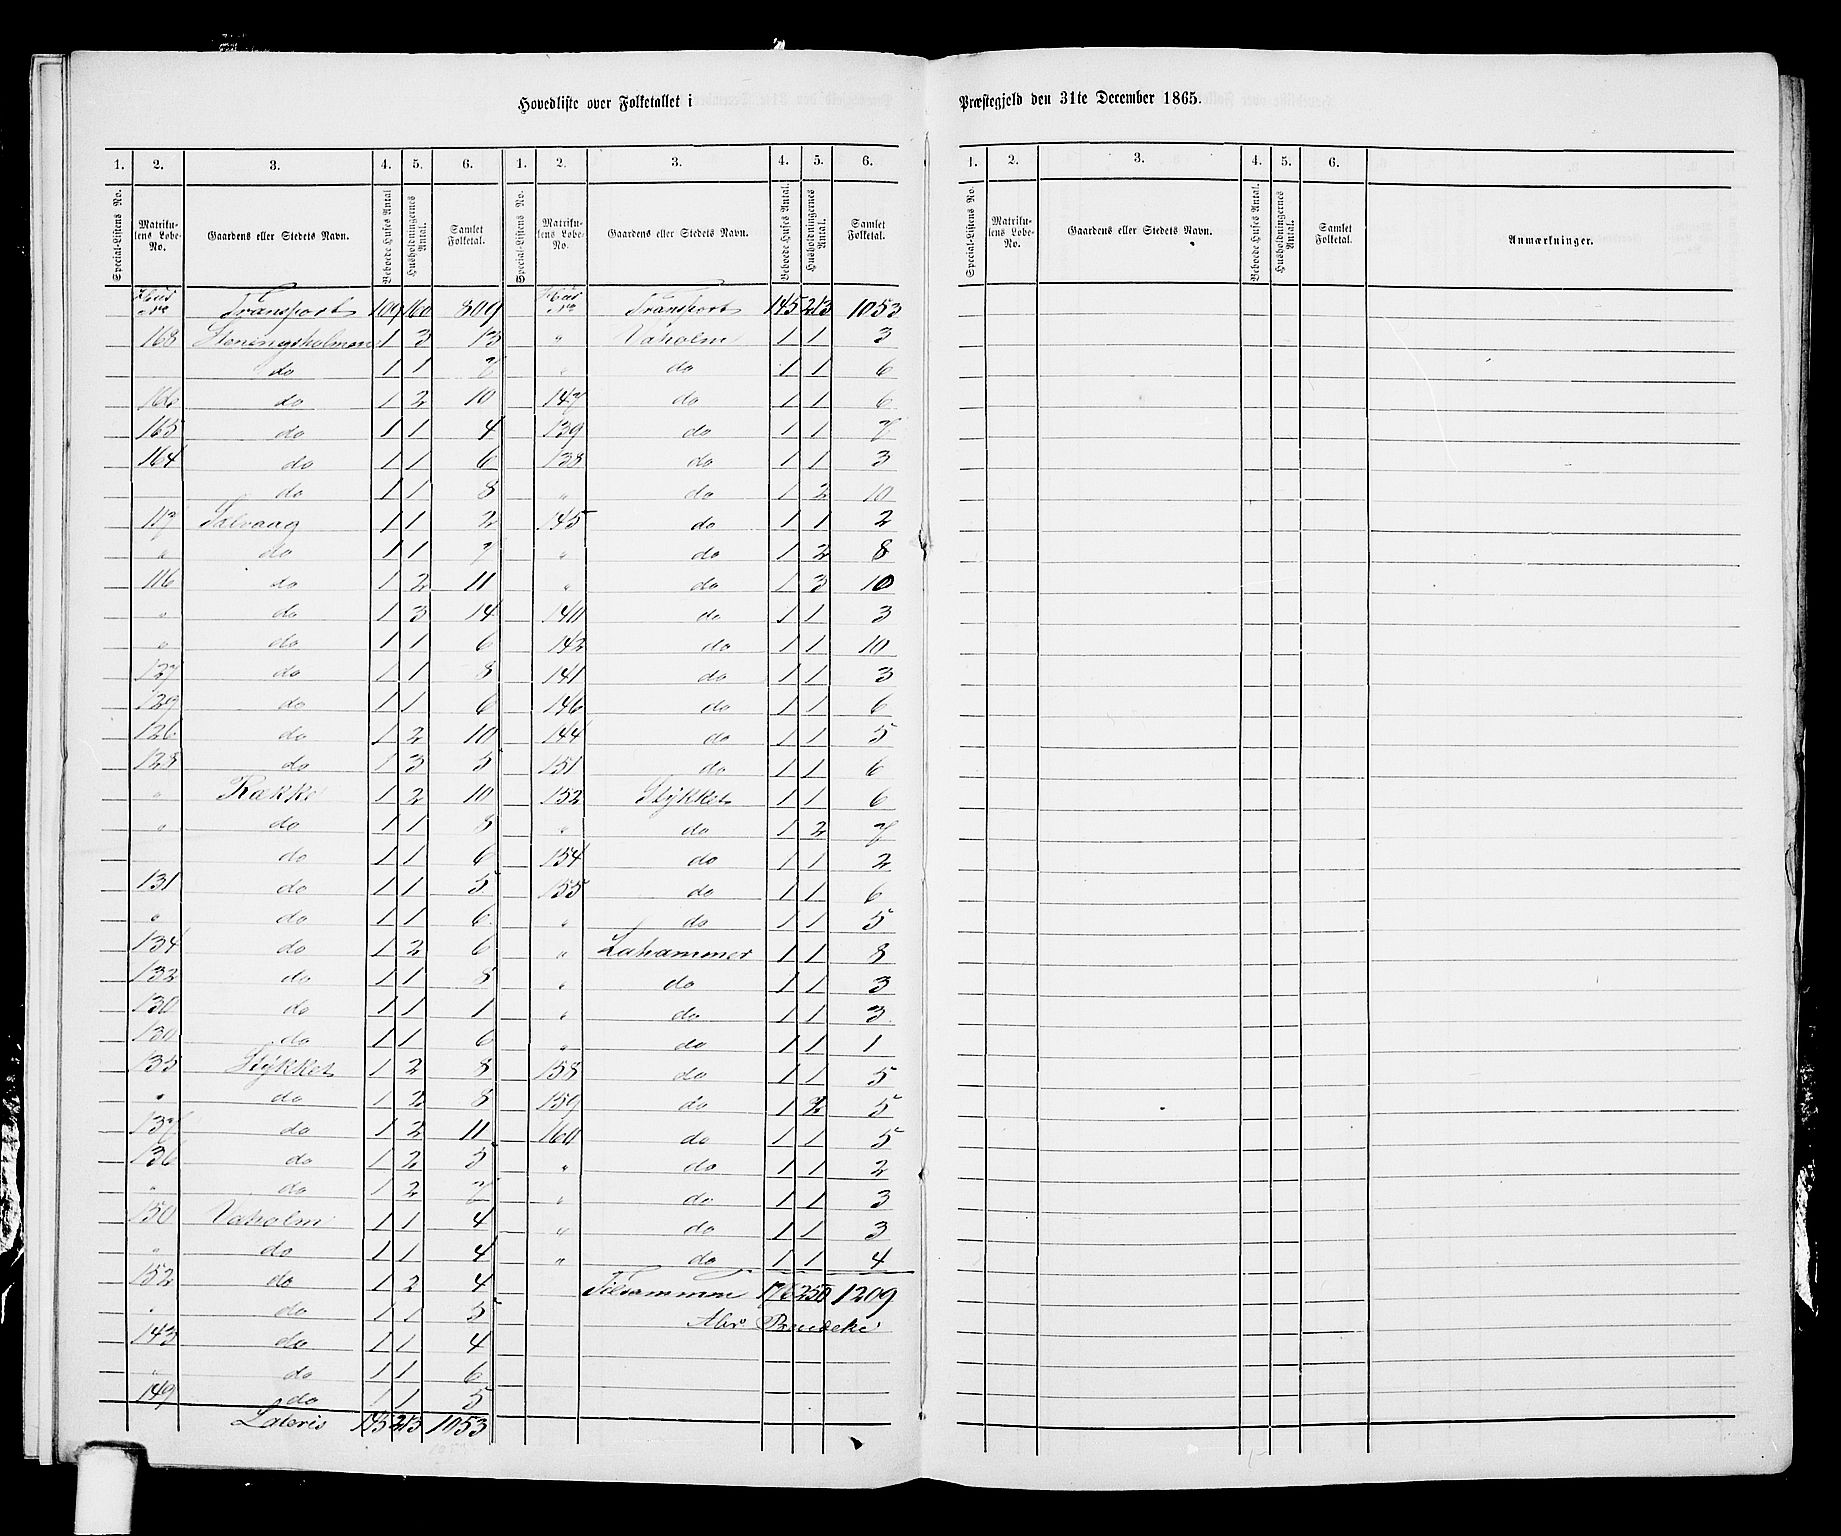 Hovedliste over Folketallet i Præstegjeld den 31te December 1865.
1. 2. 3. 4. 5. 6. 1. 2. 3. 4. 5. 6.
Special-Listens No. Matrikulens Løbe-No. Gaardens eller Stedets Navn. Beboede Huses Antal Husholdningernes Antal. Samlet Folketal. Special-Listens No. Matrikulens Løbe-No. Gaardens eller Stedets Navn. Beboede Huses Antal. Husholdningernes Antal. Samlet Folketal.
Hus No Transport 109 160 809
168 Steningsholmen 1 3 13
do 1 1 7
166 do 1 2 10
165 do 1 1 4
164 do 1 1 6
do 1 1 8
117 Salvaag 1 1 2
" do 1 1 7
116 do 1 2 11
" do 1 3 14
" do 1 1 6
127 do 1 1 8
129 do 1 1 6
126 do 1 2 10
128 do 1 3 5
" Række 1 2 10
" do 1 1 8
do 1 1 6
131 do 1 1 5
" do 1 1 6
134 do 1 2 6
132 do 1 1 8
130 do 1 1 1
130 do 1 1 6
135 Stykket 1 2 8
" do 1 2 8
137 do 1 2 11
136 do 1 2 5
" do 1 2 7
150 Vaholm 1 1 4
" do 1 1 4
152 do 1 2 4
" do 1 1 5
143 do 1 1 4
" do 1 1 6
149 do 1 1 5
Lateris 145 213 1053
Hus No Transport 145 213 1053
" Vaholm 1 1 3
" do 1 1 6
147 do 1 1 6
139 do 1 1 7
138 do 1 1 3
" do 1 2 10
145 do 1 1 2
" do 1 2 8
" do 1 3 10
140 do 1 1 3
142 do 1 1 10
141 do 1 1 3
146 do 1 1 6
144 do 1 1 5
151 do 1 1 6
152 Stykket 1 1 6
" do 1 2 7
154 do 1 1 2
155 do 1 1 6
" do 1 1 5
" Lahammer 1 1 8
" do 1 1 3
" do 1 1 3
" do 1 1 1
158 do 1 1 5
159 do 1 2 5
160 do 1 1 5
" do 1 1 2
" do 1 1 3
" do 1 1 3
" do 1 1 4
Tilsammen 176 250 1209
1. 2. 3. 4. 5. 6.
Special-Listens No. Matrikulens Løbe-No. Gaardens eller Stedets Navn. Beboede Huses Antal. Husholdningernes Antal. Samlet Folketal. Anmærkninger.